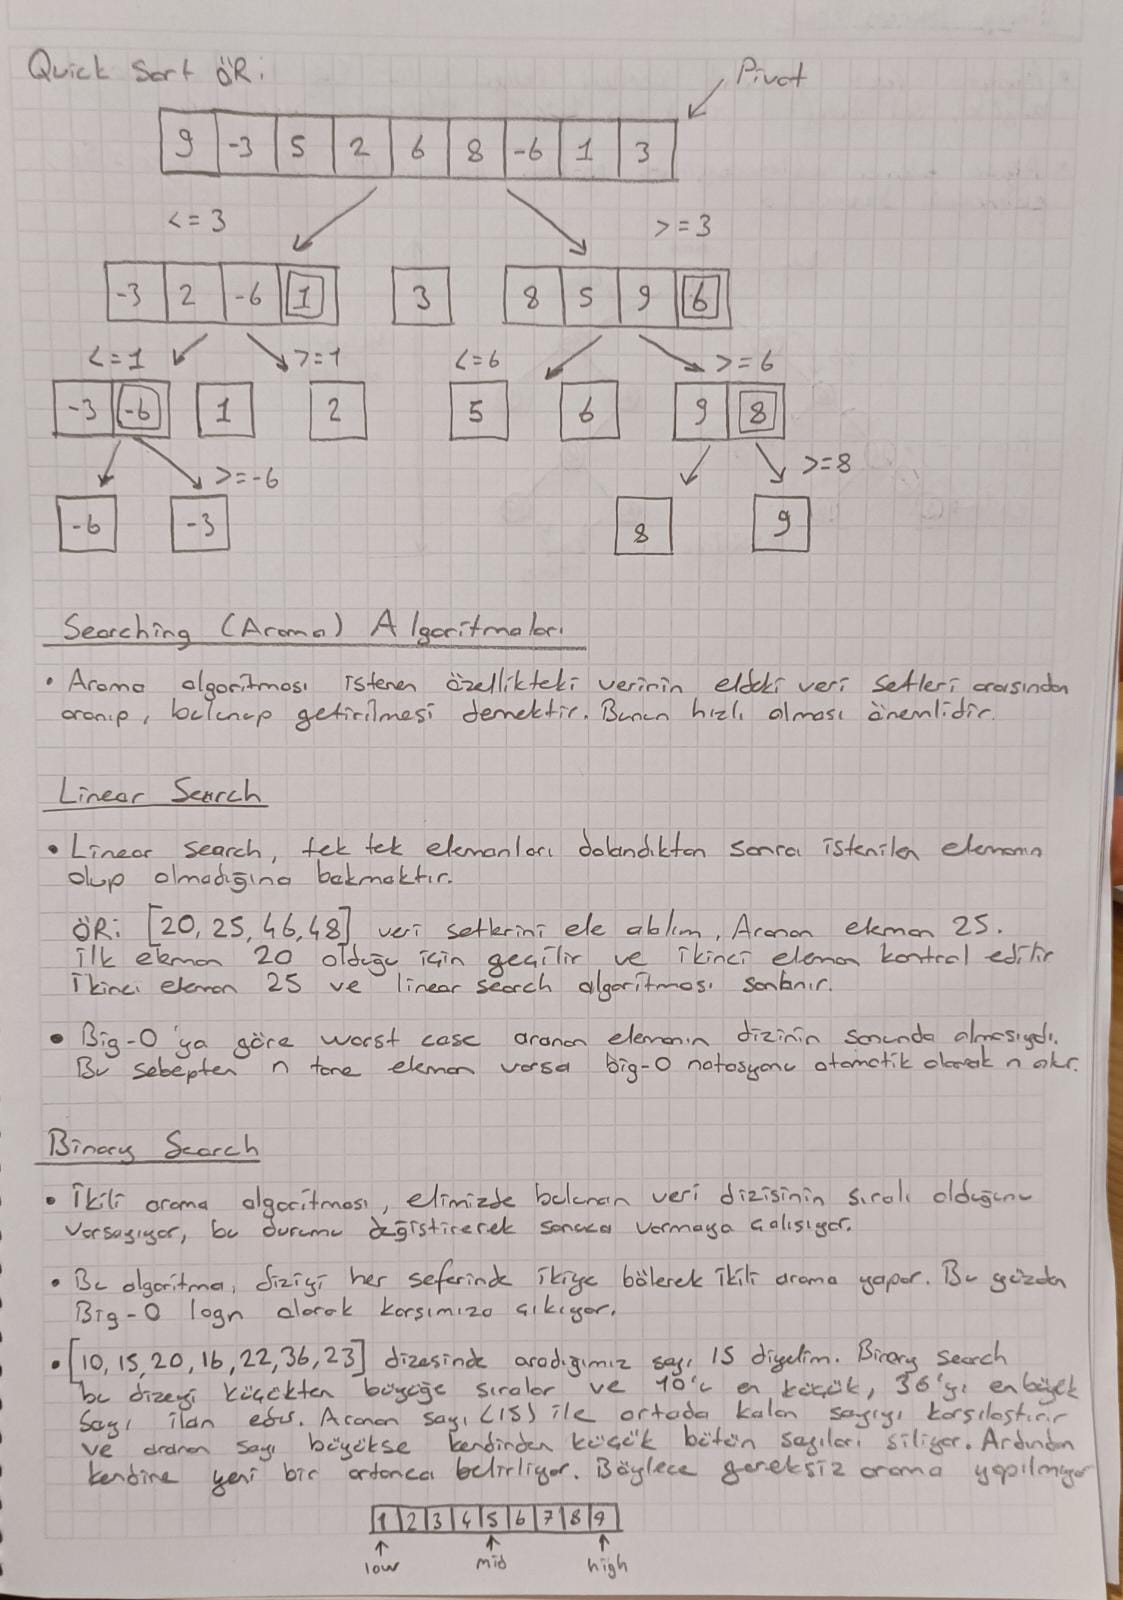 Quick Sort ÖR:
Pivot
9 -3 5 2 6 8 -6 1 3
<= 3 >= 3
-3 2 -6 1 3 8 5 9 6
<= 1 >= 1 <= 6 >= 6
-3 -6 1 2 5 6 9 8
>= -6 >= 8
-6 -3 8 9
Searching (Arama) Algoritmaları
• Arama algoritması istenen özellikteki verinin eldeki veri setleri arasından
aranıp, bulunup getirilmesi demektir. Bunun hızlı olması önemlidir.
Linear Search
• Linear search, tek tek elemanları dolandıktan sonra istenilen elemanın
olup olmadığına bakmaktır.
ÖR: [20, 25, 46, 48] veri setlerini ele alalım, Aranan eleman 25.
İlk eleman 20 olduğu için geçilir ve ikinci eleman kontrol edilir
İkinci eleman 25 ve linear search algoritması sonlanır.
• Big-O 'ya göre worst case aranan elemanın dizinin sonunda olmasıydı.
Bu sebepten n tane eleman varsa big-O notasyonu otomatik olarak n olur.
Binary Search
• İkili arama algoritması, elimizde bulunan veri dizisinin sıralı olduğunu
varsayıyor, bu durumu değiştirerek sonuca varmaya çalışıyor.
• Bu algoritma, diziyi her seferinde ikiye bölerek ikili arama yapar. Bu yüzden
Big-O logn olarak karşımıza çıkıyor.
• [10, 15, 20, 16, 22, 36, 23] dizesinde aradığımız sayı 15 diyelim. Binary Search
bu dizeyi küçükten büyüğe sıralar ve 10'u en küçük, 36'yı en büyük
sayı ilan eder. Aranan sayı (15) ile ortada kalan sayıyı karşılaştırır
ve aranan sayı büyükse kendinden küçük bütün sayıları siliyor. Ardından
kendine yeni bir ortanca belirliyor. Böylece gereksiz arama yapılmıyor
1 2 3 4 5 6 7 8 9
low mid high